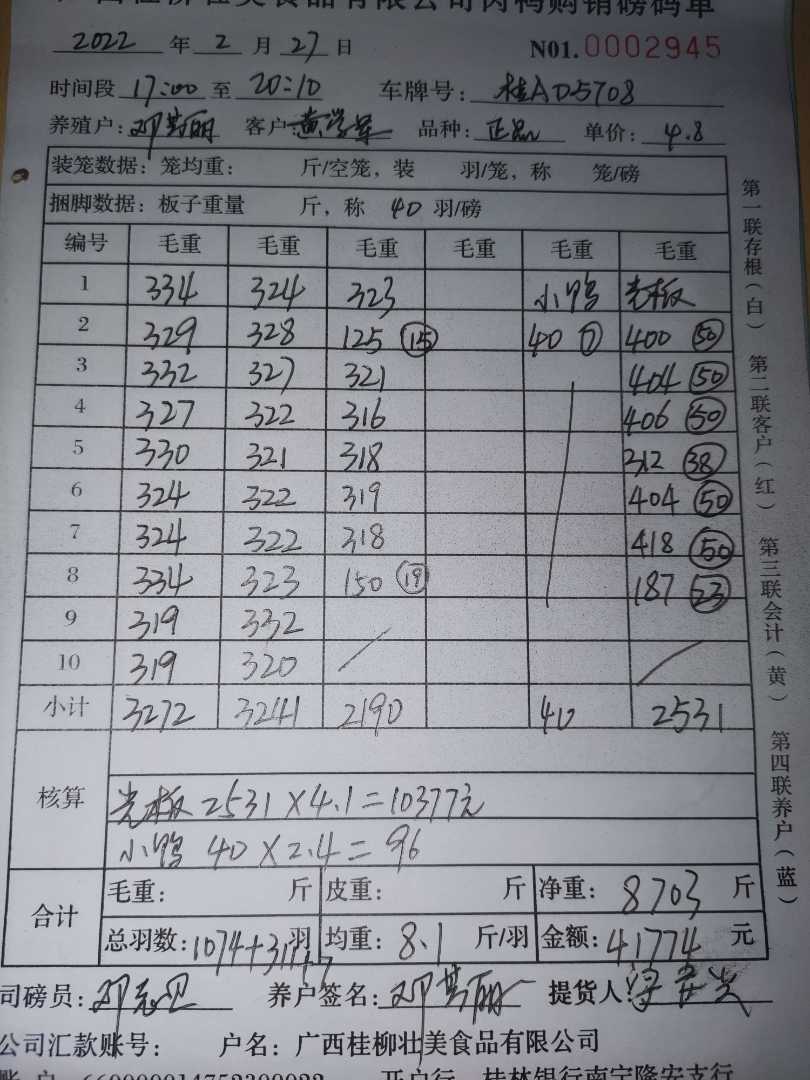 广西桂柳壮美食品有限公司肉鸭购销磅码单
2022 年 2 月 27 日 N01.0002945
时间段 17:00 至 20:10 车牌号: 桂AD5708
养殖户: 邓英丽 客户 黄学军 品种: 正品 单价: 4.8
装笼数据: 笼均重: 斤/空笼, 装 羽/笼, 称 笼/磅
捆脚数据: 板子重量 斤, 称 40 羽/磅
编号 毛重 毛重 毛重 毛重 毛重 毛重
1 334 324 323 小鸭 光板
2 329 328 125 (15) 40 400 (50)
3 332 327 321 404 (50)
4 327 322 316 406 (50)
5 330 321 318 312 (38)
6 324 322 319 404 (50)
7 324 322 318 418 (50)
8 334 323 150 (19) 187 (23)
9 319 332
10 319 320
小计 3272 3241 2190 40 2531
核算
光板 2531 X 4.1 = 10377元
小鸭 40 X 2.4 = 96
合计
毛重: 斤 皮重: 斤 净重: 8703 斤
总羽数: 1074+311+7 羽 均重: 8.1 斤/羽 金额: 41774 元
司磅员: 养户签名: 邓英丽 提货人:
公司汇款账号: 户名: 广西桂柳壮美食品有限公司
账 户 660000014752300022 开户行 桂林银行南宁隆安支行
第一联存根(白) 第二联客户(红) 第三联会计(黄) 第四联养户(蓝)